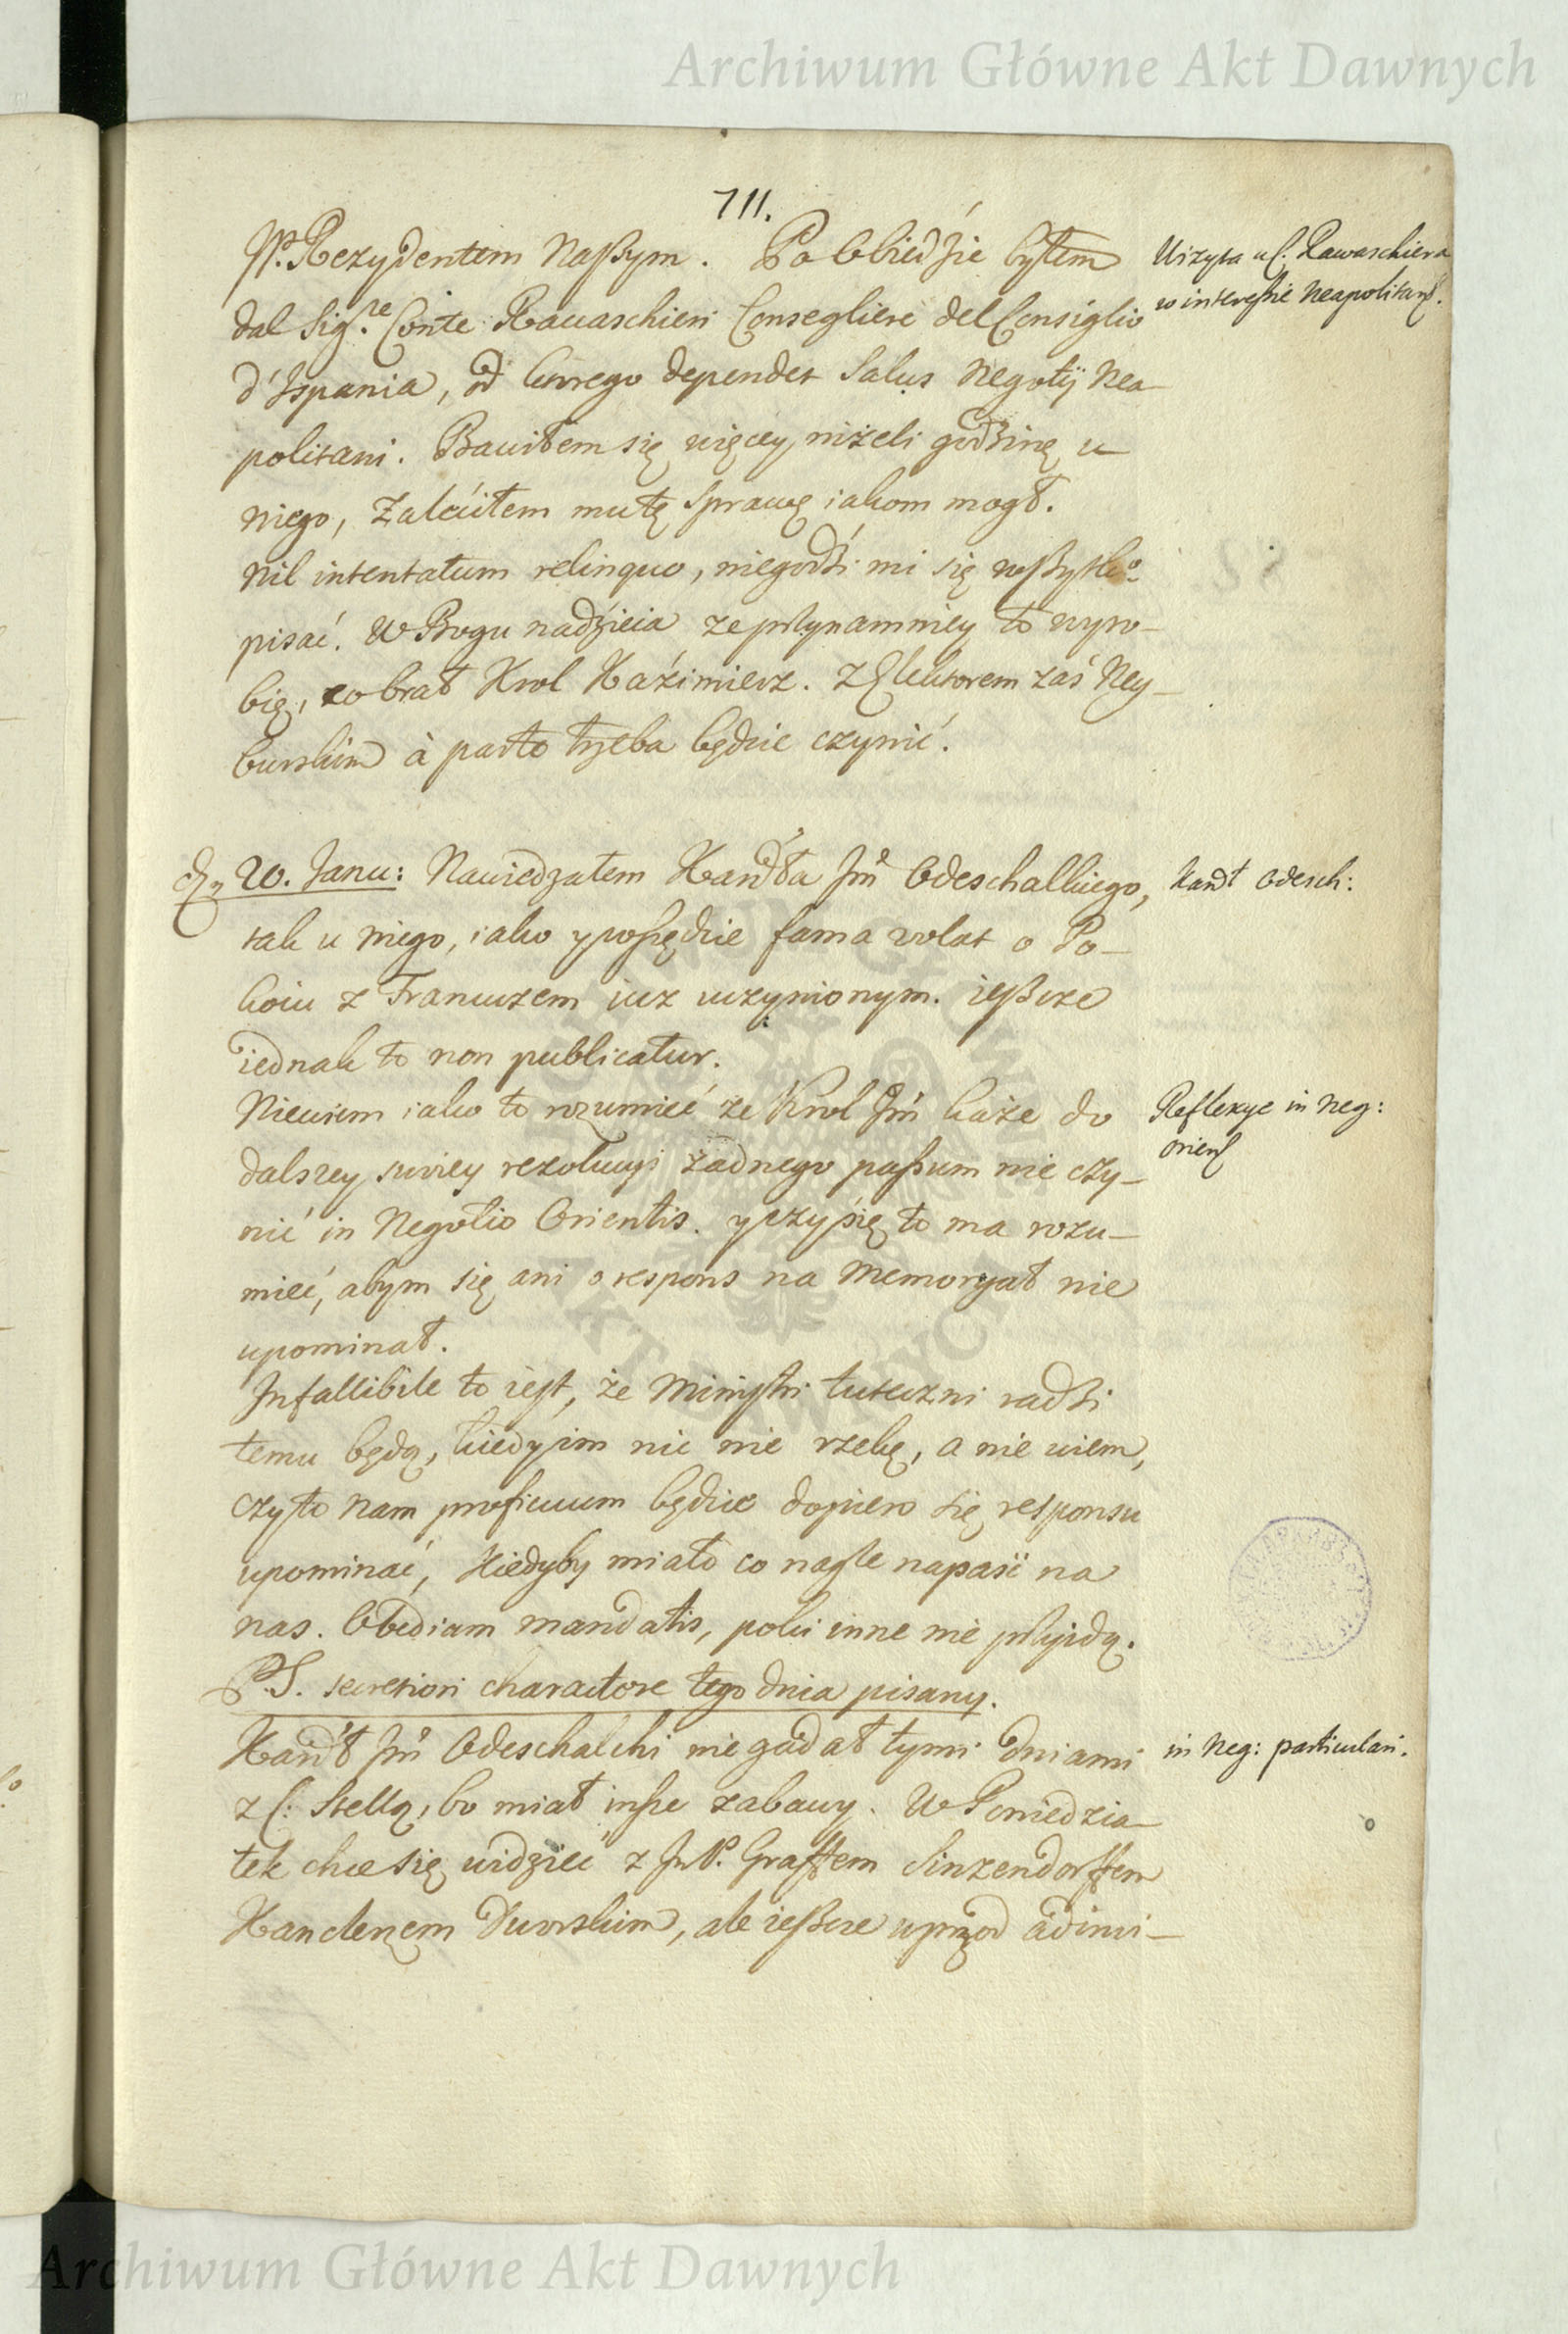 Archiwum Główne Akt Dawnych
711.
JP. Rezydentem Naszym. Po Obiedzie byłem
Wizyta u C. Rawaschiera
w interessie Neapolitans.
dal Sigre Conte Rauaschieri Consegliere del Consiglio
d'Ispania, od ktorego dependet Salus Negotij Nea-
politani. Bawiłem się więcey niżeli godzinę u
niego, zaleciłem mu tę sprawę iakom mogł.
Nil intentatum relinquo, niegodzi mi się wszystko
pisać. W Bogu nadzieia ze przynamniey to wyro-
bię, co brał Krol Kaźimierz. Z Elektorem zaś Ney-
burskim à parto trzeba będzie czynić.
20. Janu: Nawiedzałem Kardła Jm Odeschalkiego,
Kardł Odesch:
tak u niego, iako y poszędzie fama volat o Po-
koiu z Francuzem iuz uczynionym. ieszcze
iednak to non publicatur.
Niewiem iako to rozumieć ze Krol Jm każe do
Reflexye in Neg:
Orient
dalszey swoiey rezolucyi żadnego passum nie czy-
nić in Negotio Orientis. y czy się to ma rozu-
mieć, abym się ani o respons na Memoryał nie
upominał.
Infallibile to iest, że Ministri tuteczni radzi
temu będą, kiedy im nic nie rzekę, a nie wiem,
czy to nam proficuum będzie dopiero się responsu
upominać, kiedyby miało co nagle napaść na
nas. Obediam mandatis, poki inne nie przyidą.
P.S. secretiori charactere tego dnia pisany.
Kardł Jm Odeschalchi nie gadał tymi dniami
in Neg: particulari.
z C: Stellą, bo miał insze zabawy. W Poniedzia-
łek chce się widzieć z JmP. Graffem Sinzendorffem
Kanclerzem Dworskim, ale ieszcze uprzod admi-
Archiwum Główne Akt Dawnych